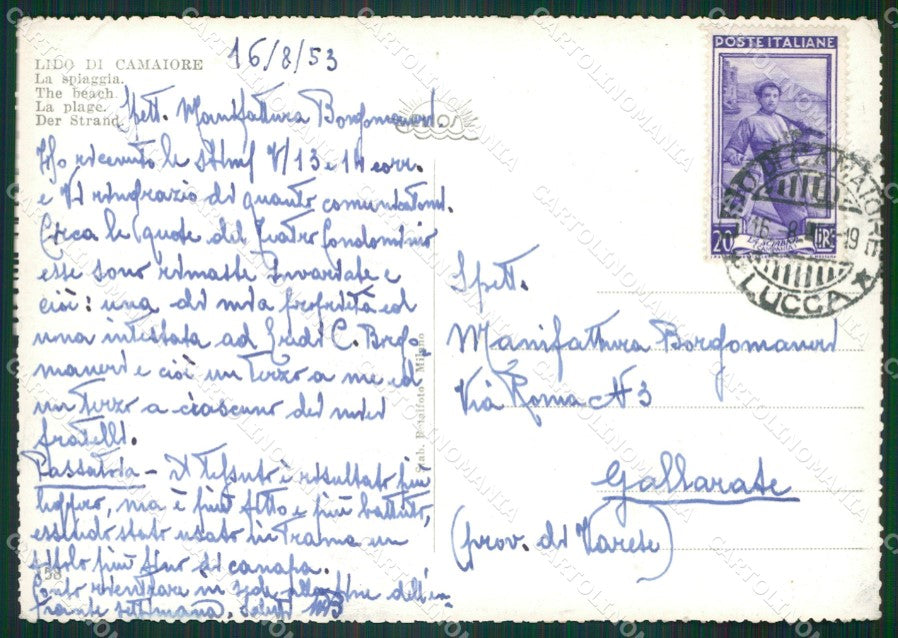 LIDO DI CAMAIORE
La spiaggia.
The beach.
La plage.
Der Strand.
16/8/53
Spett. Manifattura Borgomaneri.
Ho ricevuto le stim/ V/ 13 e 14 corr.
e Vi ringrazio di quanto comunicatomi.
Circa le quote del Teatro Condominio
esse sono rimaste invariate e
cioè: una di mia proprietà ed
una intestata ad Eredi C. Borgo,
maneri e cioè un terzo a me ed
un terzo a ciascuno dei miei
fratelli.
Passatoia - il tessuto è risultato più
leggero, ma è più fitto e più battuto,
essendo stato usato in trama un
titolo più fino di canapa.
Conto rientrare in sede alla fine dell'en-
trante settimana. Saluti
58
Stab. Milano
POSTE ITALIANE
20 LIRE
LIDO DI CAMAIORE
LUCCA
16. 8. 19
Spett.
Manifattura Borgomaneri
Via Roma N 3
Gallarate
(prov. di Varese)
CARTOLINOMANIA